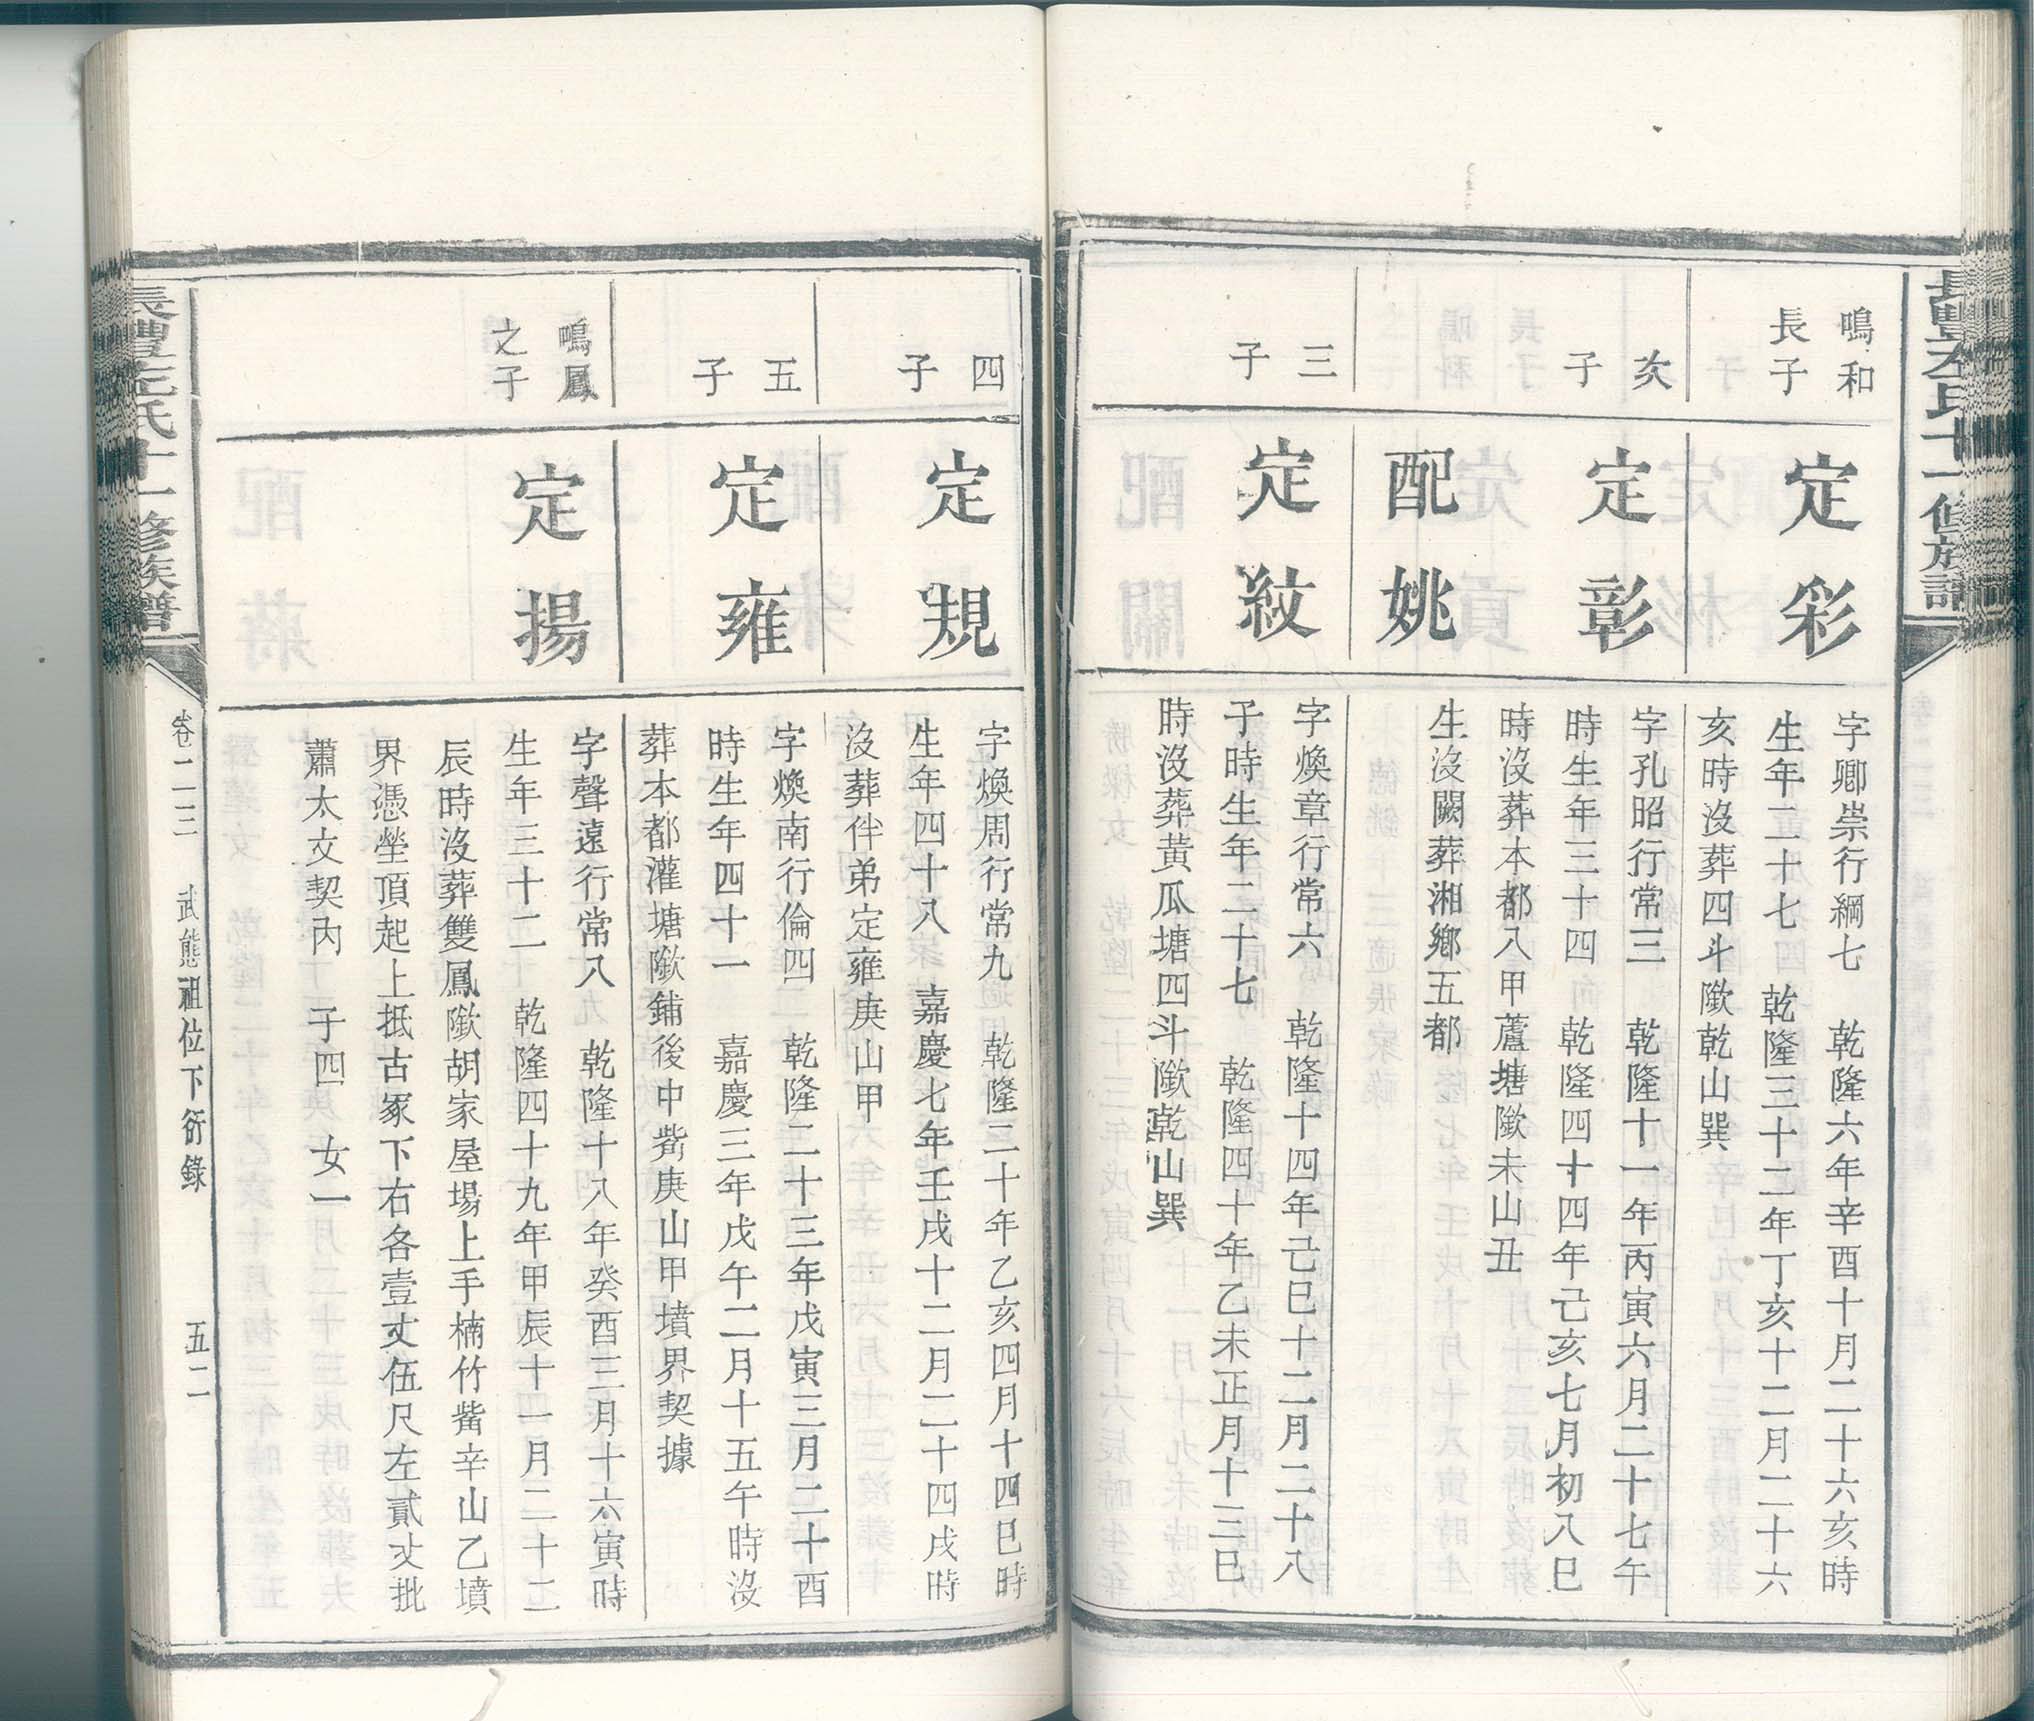 長豐左氏十一修族譜
鳴和
長子
定彩
字卿崇行綱七　乾隆六年辛酉十月二十六亥時
生年二十七　乾隆三十二年丁亥十二月二十六
亥時沒葬四斗墩乾山巽
次子
定彰
字孔昭行常三　乾隆十一年丙寅六月二十七午
時生年三十四　乾隆四十四年己亥七月初八巳
時沒葬本都八甲蘆塘墩未山丑
配姚
生沒闕葬湘鄉五都
三子
定紋
字煥章行常六　乾隆十四年己巳十二月二十八
子時生年二十七　乾隆四十年乙未正月十三巳
時沒葬黃瓜塘四斗墩乾山巽
四子
定規
字煥周行常九　乾隆二十年乙亥四月十四巳時
生年四十八　嘉慶七年壬戌十二月二十四戌時
沒葬伴弟定雍庚山甲
五子
定雍
字煥南行倫四　乾隆二十三年戊寅三月二十酉
時生年四十一　嘉慶三年戊午二月十五午時沒
葬本都灌塘墩鋪後中觜庚山甲墳界契據
鳴鳳
之子
定揚
字聲遠行常八　乾隆十八年癸酉三月十六寅時
生年三十二　乾隆四十九年甲辰十一月二十二
辰時沒葬雙鳳墩胡家屋場上手楠竹觜辛山乙墳
界憑塋頂起上抵古冢下右各壹丈伍尺左貳丈批
蕭太文契內　子四　女一
長豐左氏十一修族譜
卷二三　武態祖位下衍錄　五二